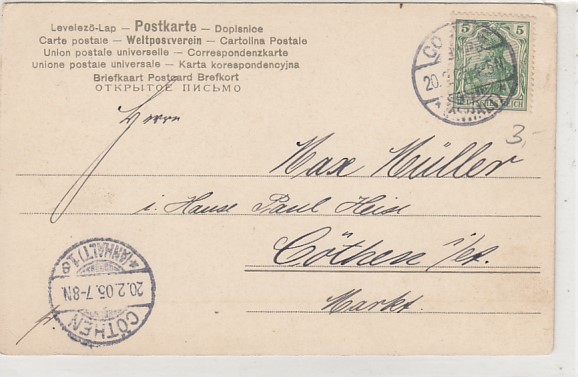 Levelező-Lap — Postkarte — Dopisnice
Carte postale — Weltpostverein — Cartolina Postale
Union postale universelle — Correspondenzkarte
Unione postale universale — Karta korespondencyjna
Briefkaart Postcard Brefkort
ОТКРЫТОЕ ПИСЬМО
5 5
REICH
3,-
Herrn
Max Müller
i. Hause Paul Heise
Cöthen i/A.
Markt.
CÖTHEN
20.2.05.7-8N.
*(ANHALT)1e